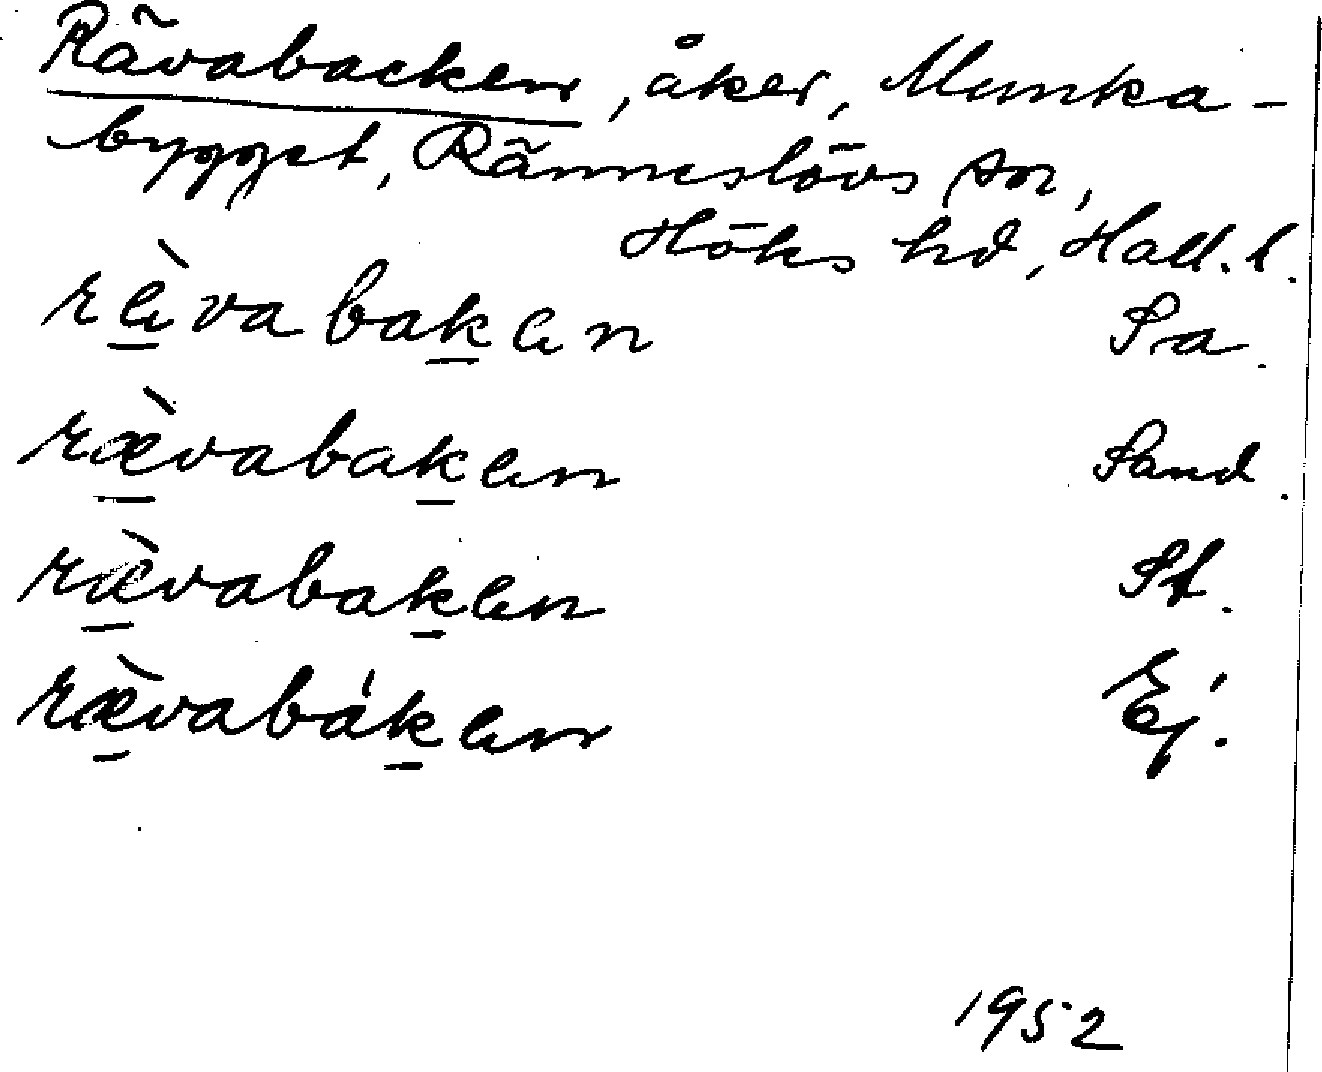 Rävabacken, åker, Munka-
bygget, Ränneslövs sn,
Höks hd, Hall. l.
rævabaken Sa.
rævabaken Sand.
rævabaken St.
rævabáken Ej.
1952